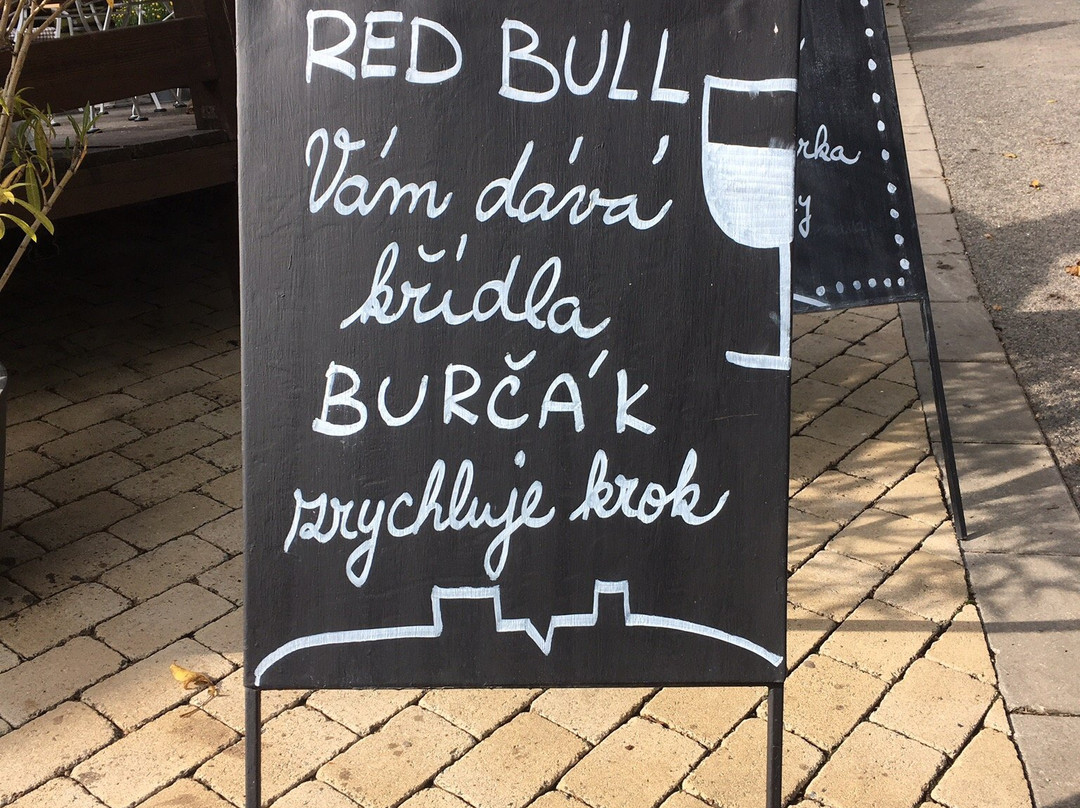 RED BULL
Vám dává
křídla
BURČÁK
zrychluje krok